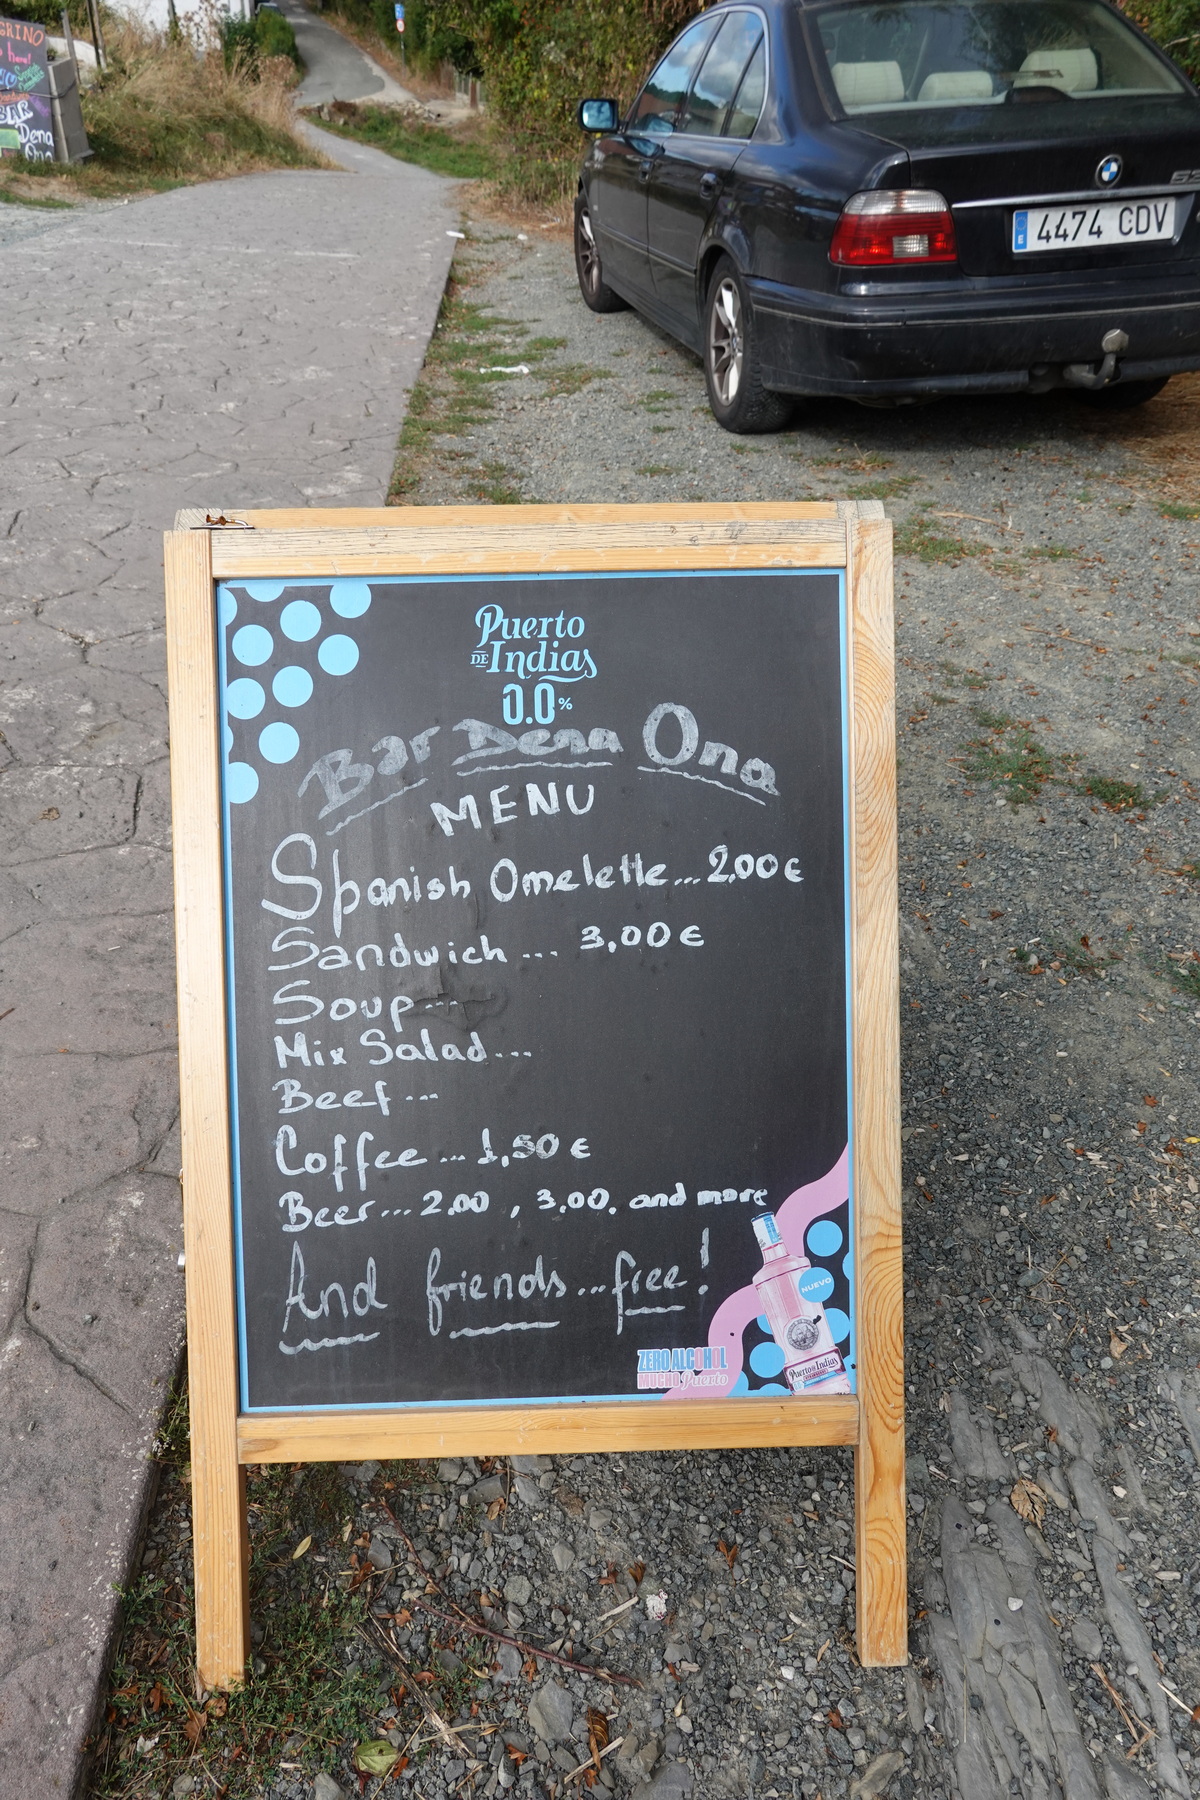 GRINO
BAR
Dena
Ona
4474 CDV
E
Puerto
DE Indias
0.0%
Bar Dena Ona
MENU
Spanish Omelette...2,00€
Sandwich ... 3,00€
Soup...
Mix Salad...
Beef ...
Coffee ... 1,50€
Beer... 2.00 , 3,00, and more
And friends...free!
NUEVO
Puerto de Indias
ZERO ALCOHOL
MUCHO Puerto